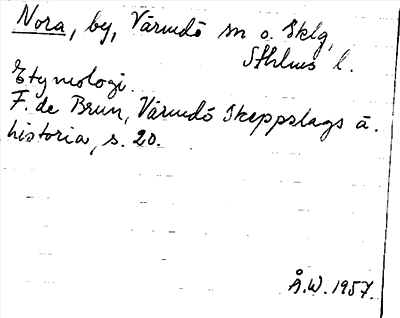 Nora, by, Värmdö sn o. Sklg,
Sthlms l.
Etymologi.
F. de Brun, Värmdö Skeppslags ä.
historia, s. 20.
Å.W. 1957.